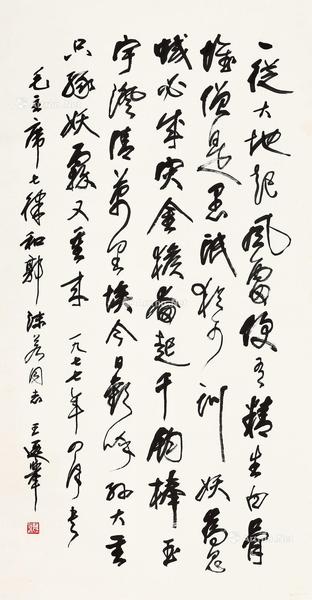 一從大地起風雷便有精生白骨
堆僧是愚氓猶可訓妖為鬼
蜮必成灾金猴奮起千鈞棒玉
宇澄清萬里埃今日歡呼孫大圣
只緣妖霧又重來 一九七七年四月書
毛主席七律和郭沫若同志 王遐舉